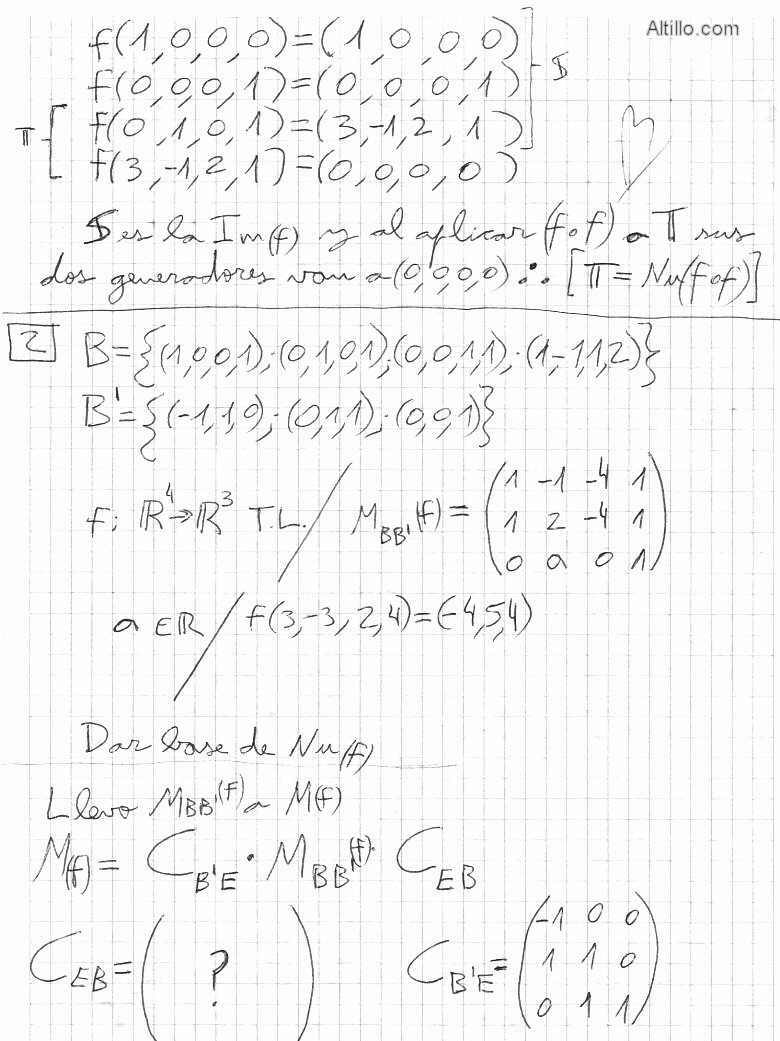 Altillo.com
f(1,0,0,0)=(1,0,0,0)
f(0,0,0,1)=(0,0,0,1) 𝕊
𝕋 f(0,1,0,1)=(3,-1,2,1)
f(3,-1,2,1)=(0,0,0,0)
𝕊 es la Im(f) y al aplicar (f∘f) a 𝕋 sus
dos generadores van a (0,0,0,0) ∴ [𝕋 = Nu(f∘f)]
2 B={(1,0,0,1);(0,1,0,1);(0,0,1,1);(1,-1,1,2)}
B'={(-1,1,0);(0,1,1);(0,0,1)}
f: ℝ⁴→ℝ³ T.L. / M_BB'(f) = (1 -1 -4 1
1 2 -4 1
0 a 0 1)
a ∈ ℝ / f(3,-3,2,4)=(-4,5,4)
Dar base de Nu(f)
Llevo M_BB'(f) a M(f)
M(f) = C_B'E · M_BB'(f) · C_EB
C_EB = ( ? ) C_B'E = (-1 0 0
1 1 0
0 1 1)